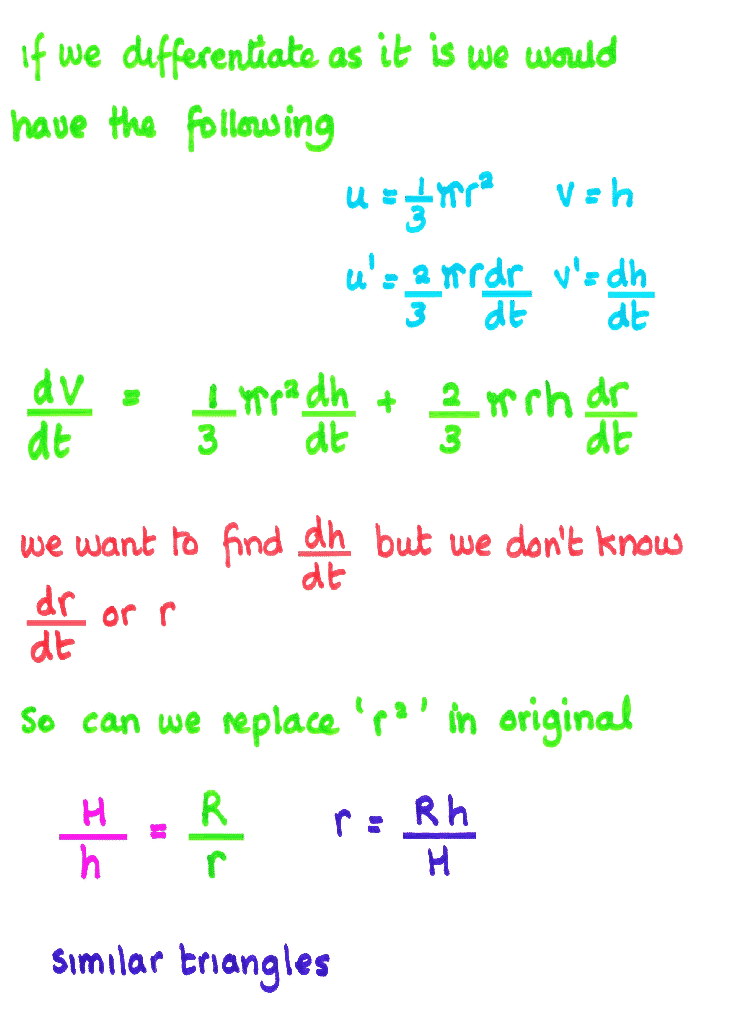 if we differentiate as it is we would
have the following
u = 1/3 πr² v = h
u' = 2/3 πr dr/dt v' = dh/dt
dV/dt = 1/3 πr² dh/dt + 2/3 πrh dr/dt
we want to find dh/dt but we don't know
dr/dt or r
So can we replace 'r²' in original
H/h = R/r r = Rh/H
similar triangles